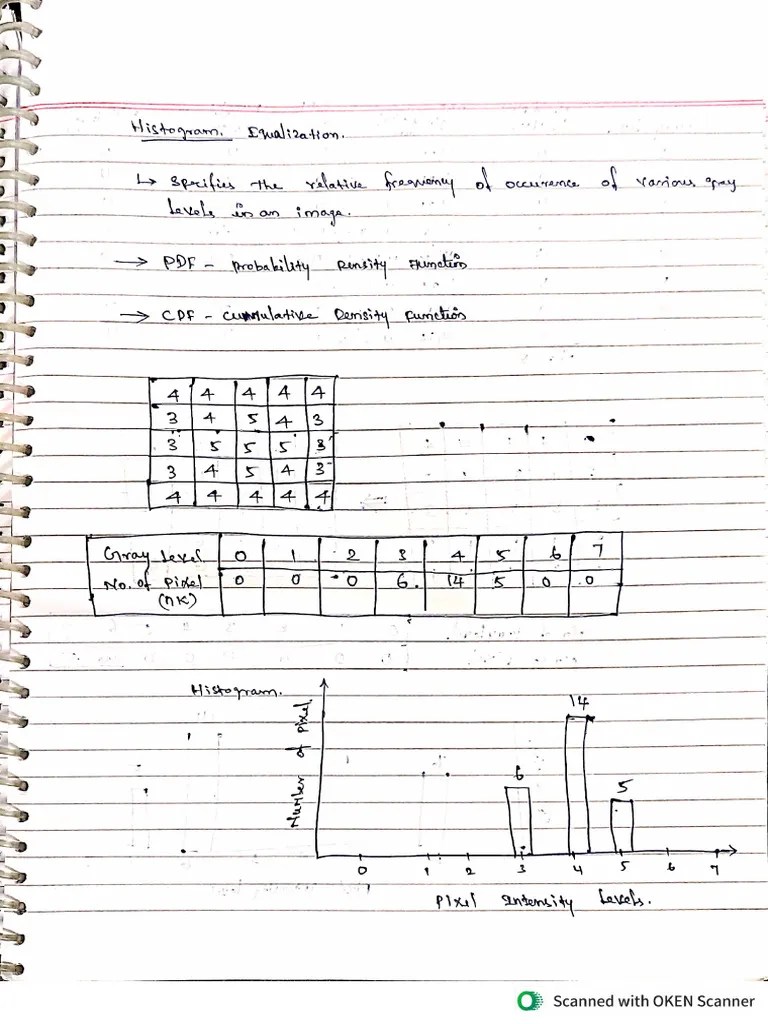 Histogram. Equalization.
↳ Specifies the relative frequency of occurrence of various gray
levels in an image.
→ PDF - Probability Density Function
→ CDF - Cummulative Density Function
4 4 4 4 4
3 4 5 4 3
3 5 5 5 3
3 4 5 4 3
4 4 4 4 4
Gray Level 0 1 2 3 4 5 6 7
No. of Pixel 0 0 0 6 14 5 0 0
(nk)
Histogram.
Number of pixel
6
14
5
0 1 2 3 4 5 6 7
Pixel Intensity Levels.
Scanned with OKEN Scanner